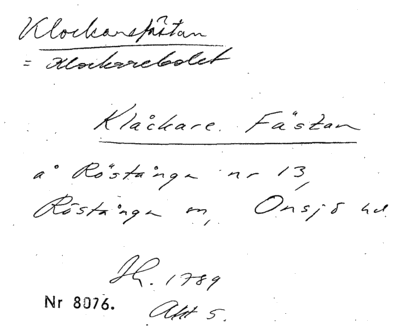 Klockarefästan
= Klockarebolet
Klåckare Fästan
å Röstånga nr 13,
Röstånga sn, Onsjö hd.
Sk. 1789
Nr 8076.
Akt 5.